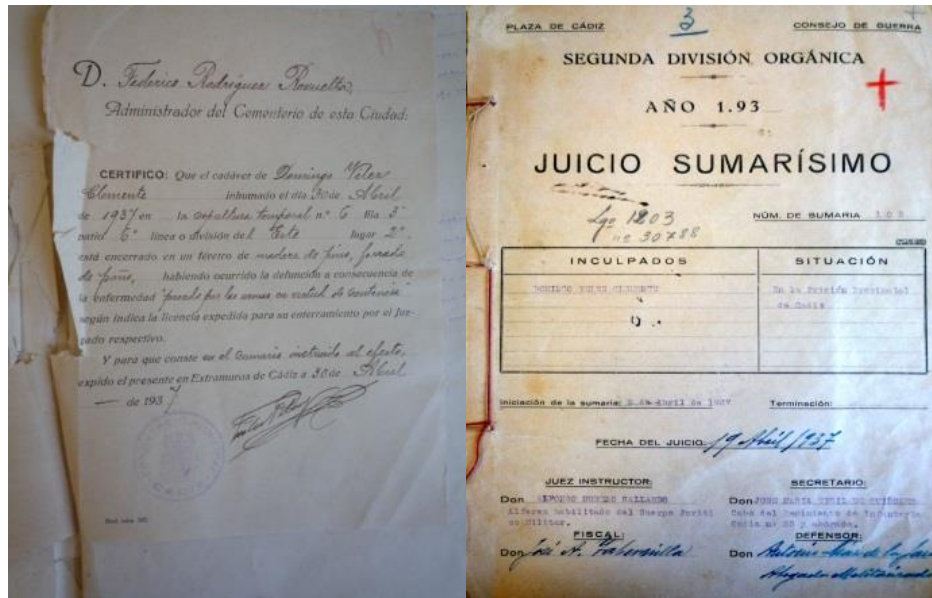 D. Federico Rodríguez
Administrador del Cementerio de esta Ciudad:
CERTIFICO: Que el cadáver de Domingo Velez
Clemente inhumado el día 30 de Abril
de 1937 en la sepultura temporal nº 6 fila 3ª
patio 6º línea o división del Este lugar 2º
está encerrado en un féretro de madera de pino, forrado
de paño, habiendo ocurrido la defunción a consecuencia de
la enfermedad "pasado por las armas en virtud de sentencia"
según indica la licencia expedida para su enterramiento por el Juz-
gado respectivo.
Y para que conste en el Sumario instruido al efecto,
expido el presente en Extramuros de Cádiz a 30 de Abril
— de 1937
PLAZA DE CÁDIZ
3
CONSEJO DE GUERRA
SEGUNDA DIVISIÓN ORGÁNICA
AÑO 1.93
JUICIO SUMARÍSIMO
Lgo 1203
nº 30788
NÚM. DE SUMARIA 103
INCULPADOS
SITUACIÓN
DOMINGO VELEZ CLEMENTE
En la Prisión Provincial
de Cadiz
Iniciación de la sumaria: de Abril de 1937
Terminación:
FECHA DEL JUICIO: 19 Abril 1937
JUEZ INSTRUCTOR:
SECRETARIO:
Don ALFONSO GALLARDO
Don JOSE MARIA VIGIL DE QUIÑONES
Alferez habilitado del Cuerpo Juridi
co Militar.
Cabo del Regimiento de Infanteria
Cadiz nº 33 y abogado.
FISCAL:
DEFENSOR:
Don José A.
Don Antonio
Abogado